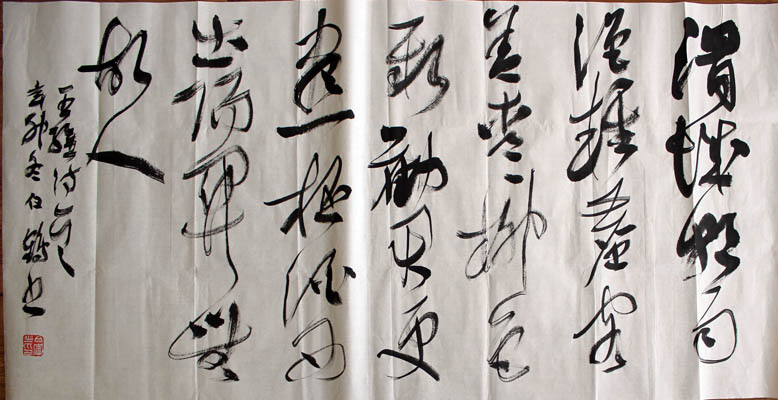 渭城朝雨
浥輕塵客
舍青青柳色
新勸君更
盡一杯酒西
出陽關無
故人
王維詩一首
辛卯冬書